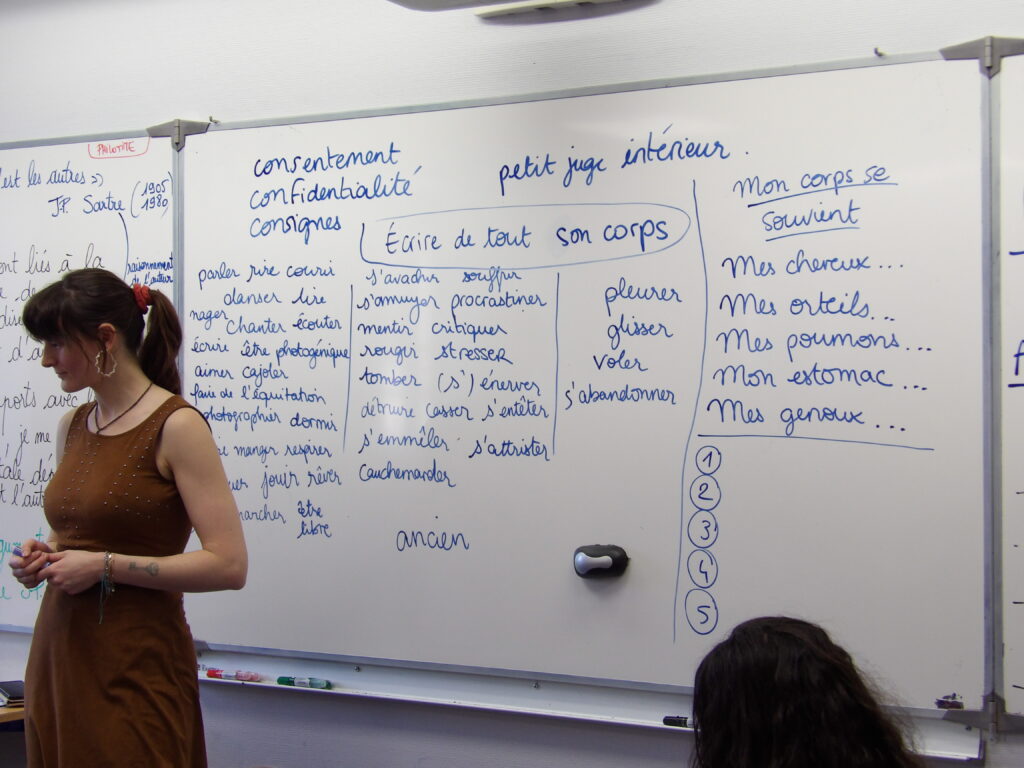 PHILOTITE
est les autres »
J-P. Sartre (1905
1980)
ont liés à la
raisonnement
de l'auteur
d'a
ports avec l
je me
t l'aut
consentement
confidentialité
consignes
petit juge intérieur.
Écrire de tout son corps
parler rire courir
danser lire
nager
chanter écouter
écrire être photogénique
aimer cajoler
faire de l'équitation
photographier dormir
manger respirer
jouir rêver
marcher être
libre
s'avachir souffrir
s'amuser procrastiner
mentir critiquer
rougir stresser
tomber (s')énerver
détruire casser s'entêter
s'emmêler s'attrister
cauchemarder
ancien
pleurer
glisser
voler
s'abandonner
Mon corps se
souvient
Mes cheveux ...
Mes orteils...
Mes poumons...
Mon estomac ...
Mes genoux ...
1
2
3
4
5